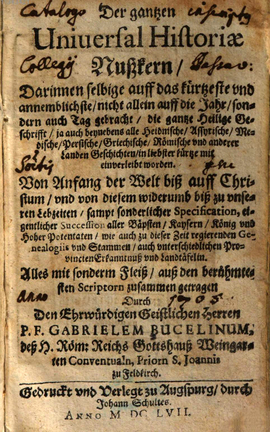 Catalogo Der gantzen inscriptq
Universal Historiæ
Collegij Nußkern / Passav:
Darinnen selbige auff das kürtzeste vnd
annemblichste / nicht allein auff die Jahr / son-
dern auch Tag gebracht / die gantze Heilige Ge-
schrifft / ja auch beynebens alle Heidnische / Assyrische / Me-
dische / Persische / Griechische / Römische vnd anderer
Landen Geschichten / in liebster kürtze mit
einverleibt worden.
Von Anfang der Welt biß auff Chri-
stum / vnd von diesem widerumb biß zu vnse-
ren Lebzeiten / sampt sonderlicher Specification, ei-
gentlicher Succession aller Bäpsten / Kaysern / König vnd
Hoher Potentaten / wie auch zu dieser Zeit regierenden Ge-
nealogiis vnd Stammen / auch vnterschiedlichen Pro-
vincien Erkanntnuß vnd Landtäfelin.
Alles mit sonderm Fleiß / auß den berühmte-
sten Scriptorn zusammen getragen
Anno Durch 1705.
Den Ehrwürdigen Geistlichen Herren
P. F. GABRIELEM BUCELINUM,
deß H. Röm: Reichs Gottshauß Weingar-
ten Conventualn, Priorn S. Joannis
zu Feldkirch.
Gedruckt vnd Verlegt zu Augspurg / durch
Johann Schultes.
ANNO M DC LVII.